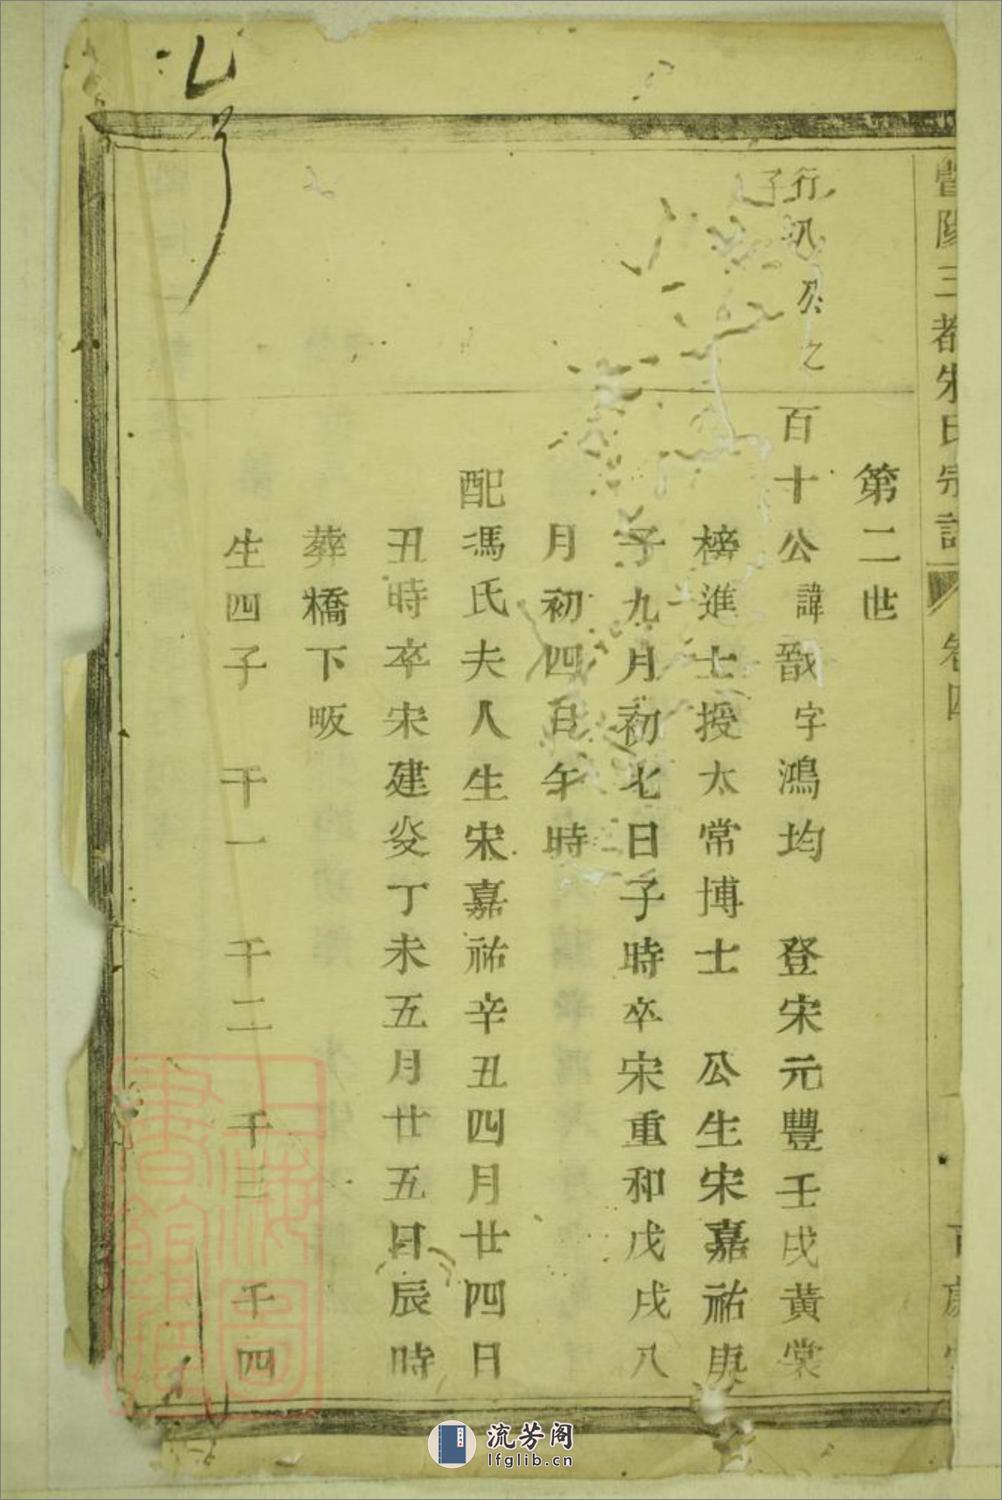 暨陽三都朱氏宗譜 卷四
第二世
行八公之
子
百十公諱戩字鴻均 登宋元豐壬戌黃裳
榜進士授太常博士 公生宋嘉祐庚
子九月初七日子時卒宋重和戊戌八
月初四日午時
配馮氏夫人生宋嘉祐辛丑四月廿四日
丑時卒宋建炎丁未五月廿五日辰時
葬橋下畈
生四子 千一 千二 千三 千四
上海圖書館藏
流芳阁
lfglib.cn